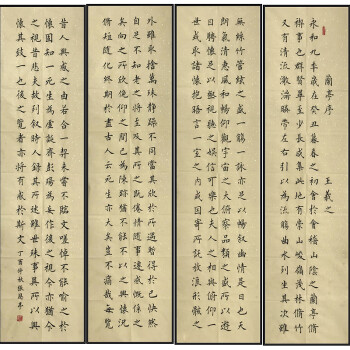 蘭亭序 王羲之
永和九年歲在癸丑暮春之初會於會稽山陰之蘭亭脩
禊事也群賢畢至少長咸集此地有崇山峻嶺茂林脩竹
又有清流激湍映帶左右引以為流觴曲水列坐其次雖
無絲竹管絃之盛一觴一詠亦足以暢敘幽情是日也天
朗氣清惠風和暢仰觀宇宙之大俯察品類之盛所以遊
目騁懷足以極視聽之娛信可樂也夫人之相與俯仰一
世或取諸懷抱晤言一室之內或因寄所託放浪形骸之
外雖趣捨萬殊靜躁不同當其欣於所遇暫得於己快然
自足不知老之將至及其所之既倦情隨事遷感慨係之
矣向之所欣俛仰之間已為陳跡猶不能不以之興懷況
脩短隨化終期於盡古人云死生亦大矣豈不痛哉每覽
昔人興感之由若合一契未嘗不臨文嗟悼不能喻之於
懷固知一死生為虛誕齊彭殤為妄作後之視今亦猶今
之視昔悲夫故列敘時人錄其所述雖世殊事異所以興
懷其致一也後之覽者亦將有感於斯文 丁酉仲秋